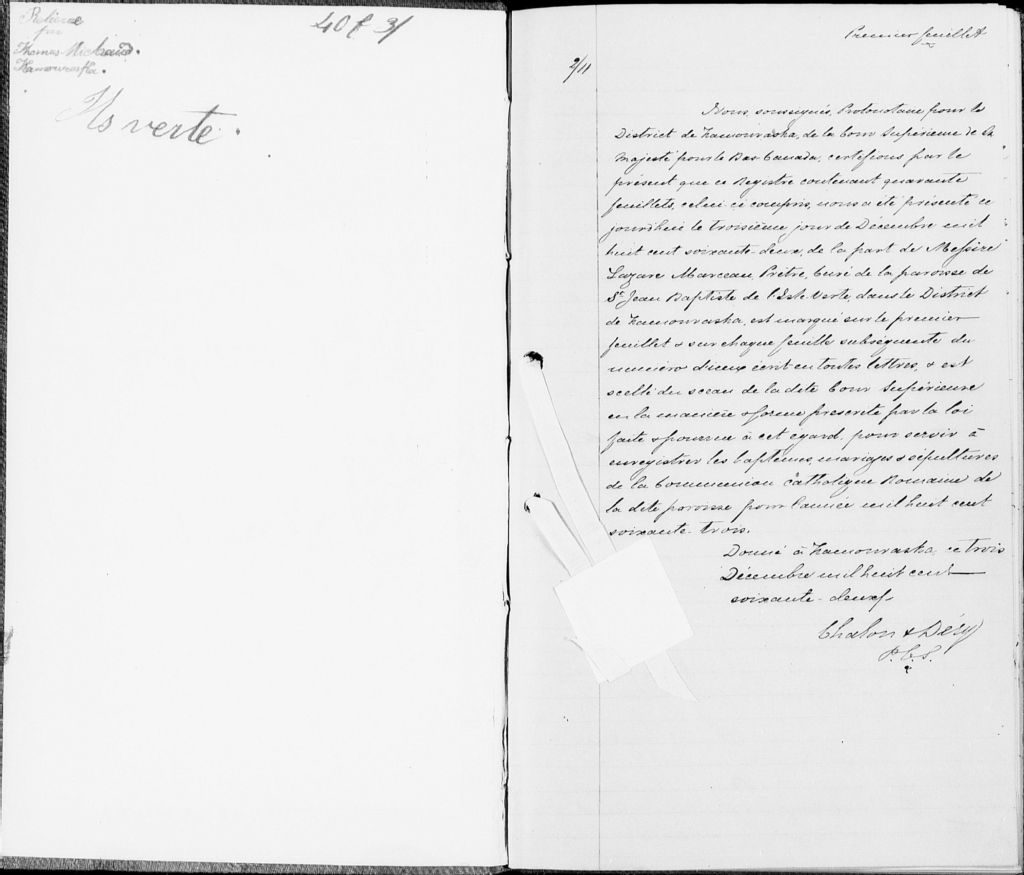 Reliure
par
Thomas Michaud.
Kamouraska.
40 f 3/
Ils verte.
Premier feuillet
2/11
Nous, soussignés, Protonotaire pour le
District de Kamouraska, de la Cour Supérieure de Sa
Majesté pour le Bas-Canada, certifions par le
présent que ce Registre contenant quarante
feuillets, celui ci compris, nous a été présenté ce
jourd'hui le troisième jour de Décembre mil
huit cent soixante-deux, de la part de Messire
Lazare Marceau, Prêtre, Curé de la paroisse de
St Jean Baptiste de l'Isle Verte, dans le District
de Kamouraska, est marqué sur le premier
feuillet & sur chaque feuille subséquente du
numéro d'iceux écrit en toutes lettres, & est
scellé du sceau de la dite Cour Supérieure
en la manière & forme prescrite par la loi
faite & pourvue à cet égard, pour servir à
enregistrer les baptêmes, mariages & sépultures
de la Communion Catholique Romaine de
la dite paroisse pour l'année mil huit cent
soixante-trois.
Donné à Kamouraska, ce trois
Décembre mil huit cent
soixante-deux.
Chalou & Déry
P. C. S.